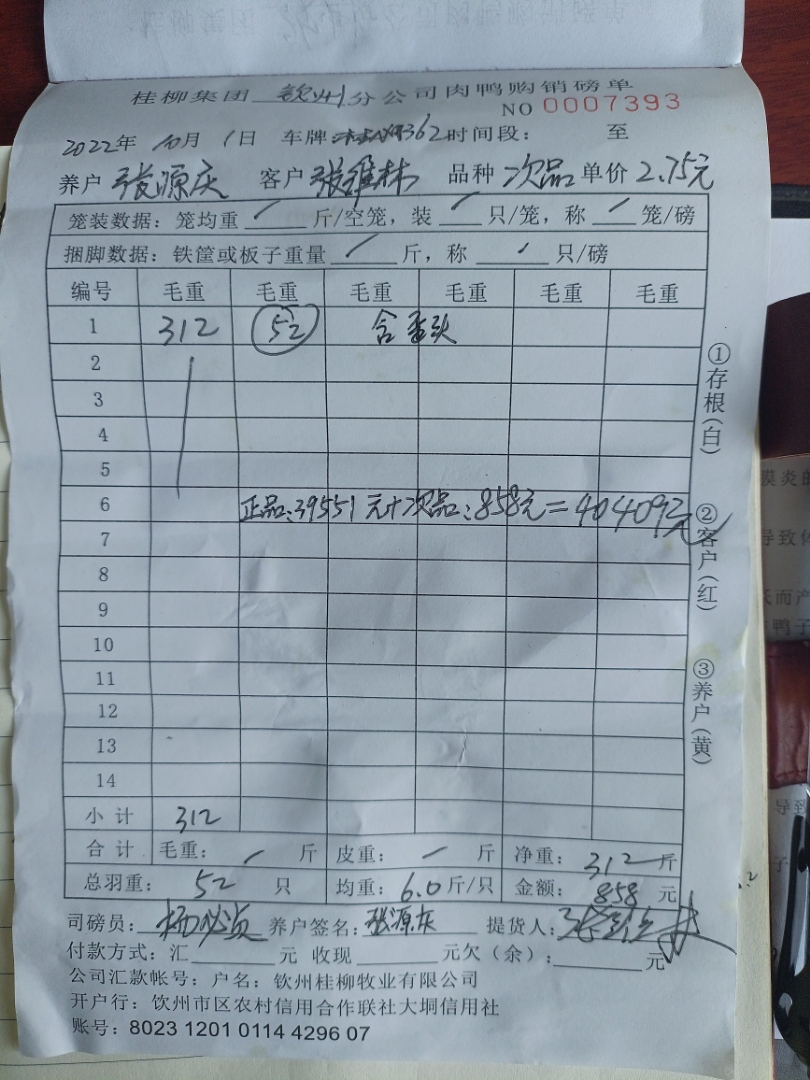 桂柳集团 钦州 分公司肉鸭购销磅单
NO 0007393
2022年 10月 1日 车牌 362 时间段： 至
养户 张源庆 客户 张维林 品种 次品 单价 2.75元
笼装数据：笼均重 / 斤/空笼，装 / 只/笼，称 / 笼/磅
捆脚数据：铁筐或板子重量 / 斤，称 / 只/磅
编号 毛重 毛重 毛重 毛重 毛重 毛重
1 312 52 含 头
2
3
4
5
6 正品：39551元+次品：858元=40409元
7
8
9
10
11
12
13
14
小计 312
合计 毛重： / 斤 皮重： / 斤 净重：312斤
总羽重：52 只 均重：6.0斤/只 金额：858 元
司磅员： 养户签名：张源庆 提货人：
付款方式：汇 元 收现 元欠（余）： 元
公司汇款帐号：户名：钦州桂柳牧业有限公司
开户行：钦州市区农村信用合作联社大垌信用社
账号：8023 1201 0114 4296 07
①存根（白）
②客户（红）
③养户（黄）